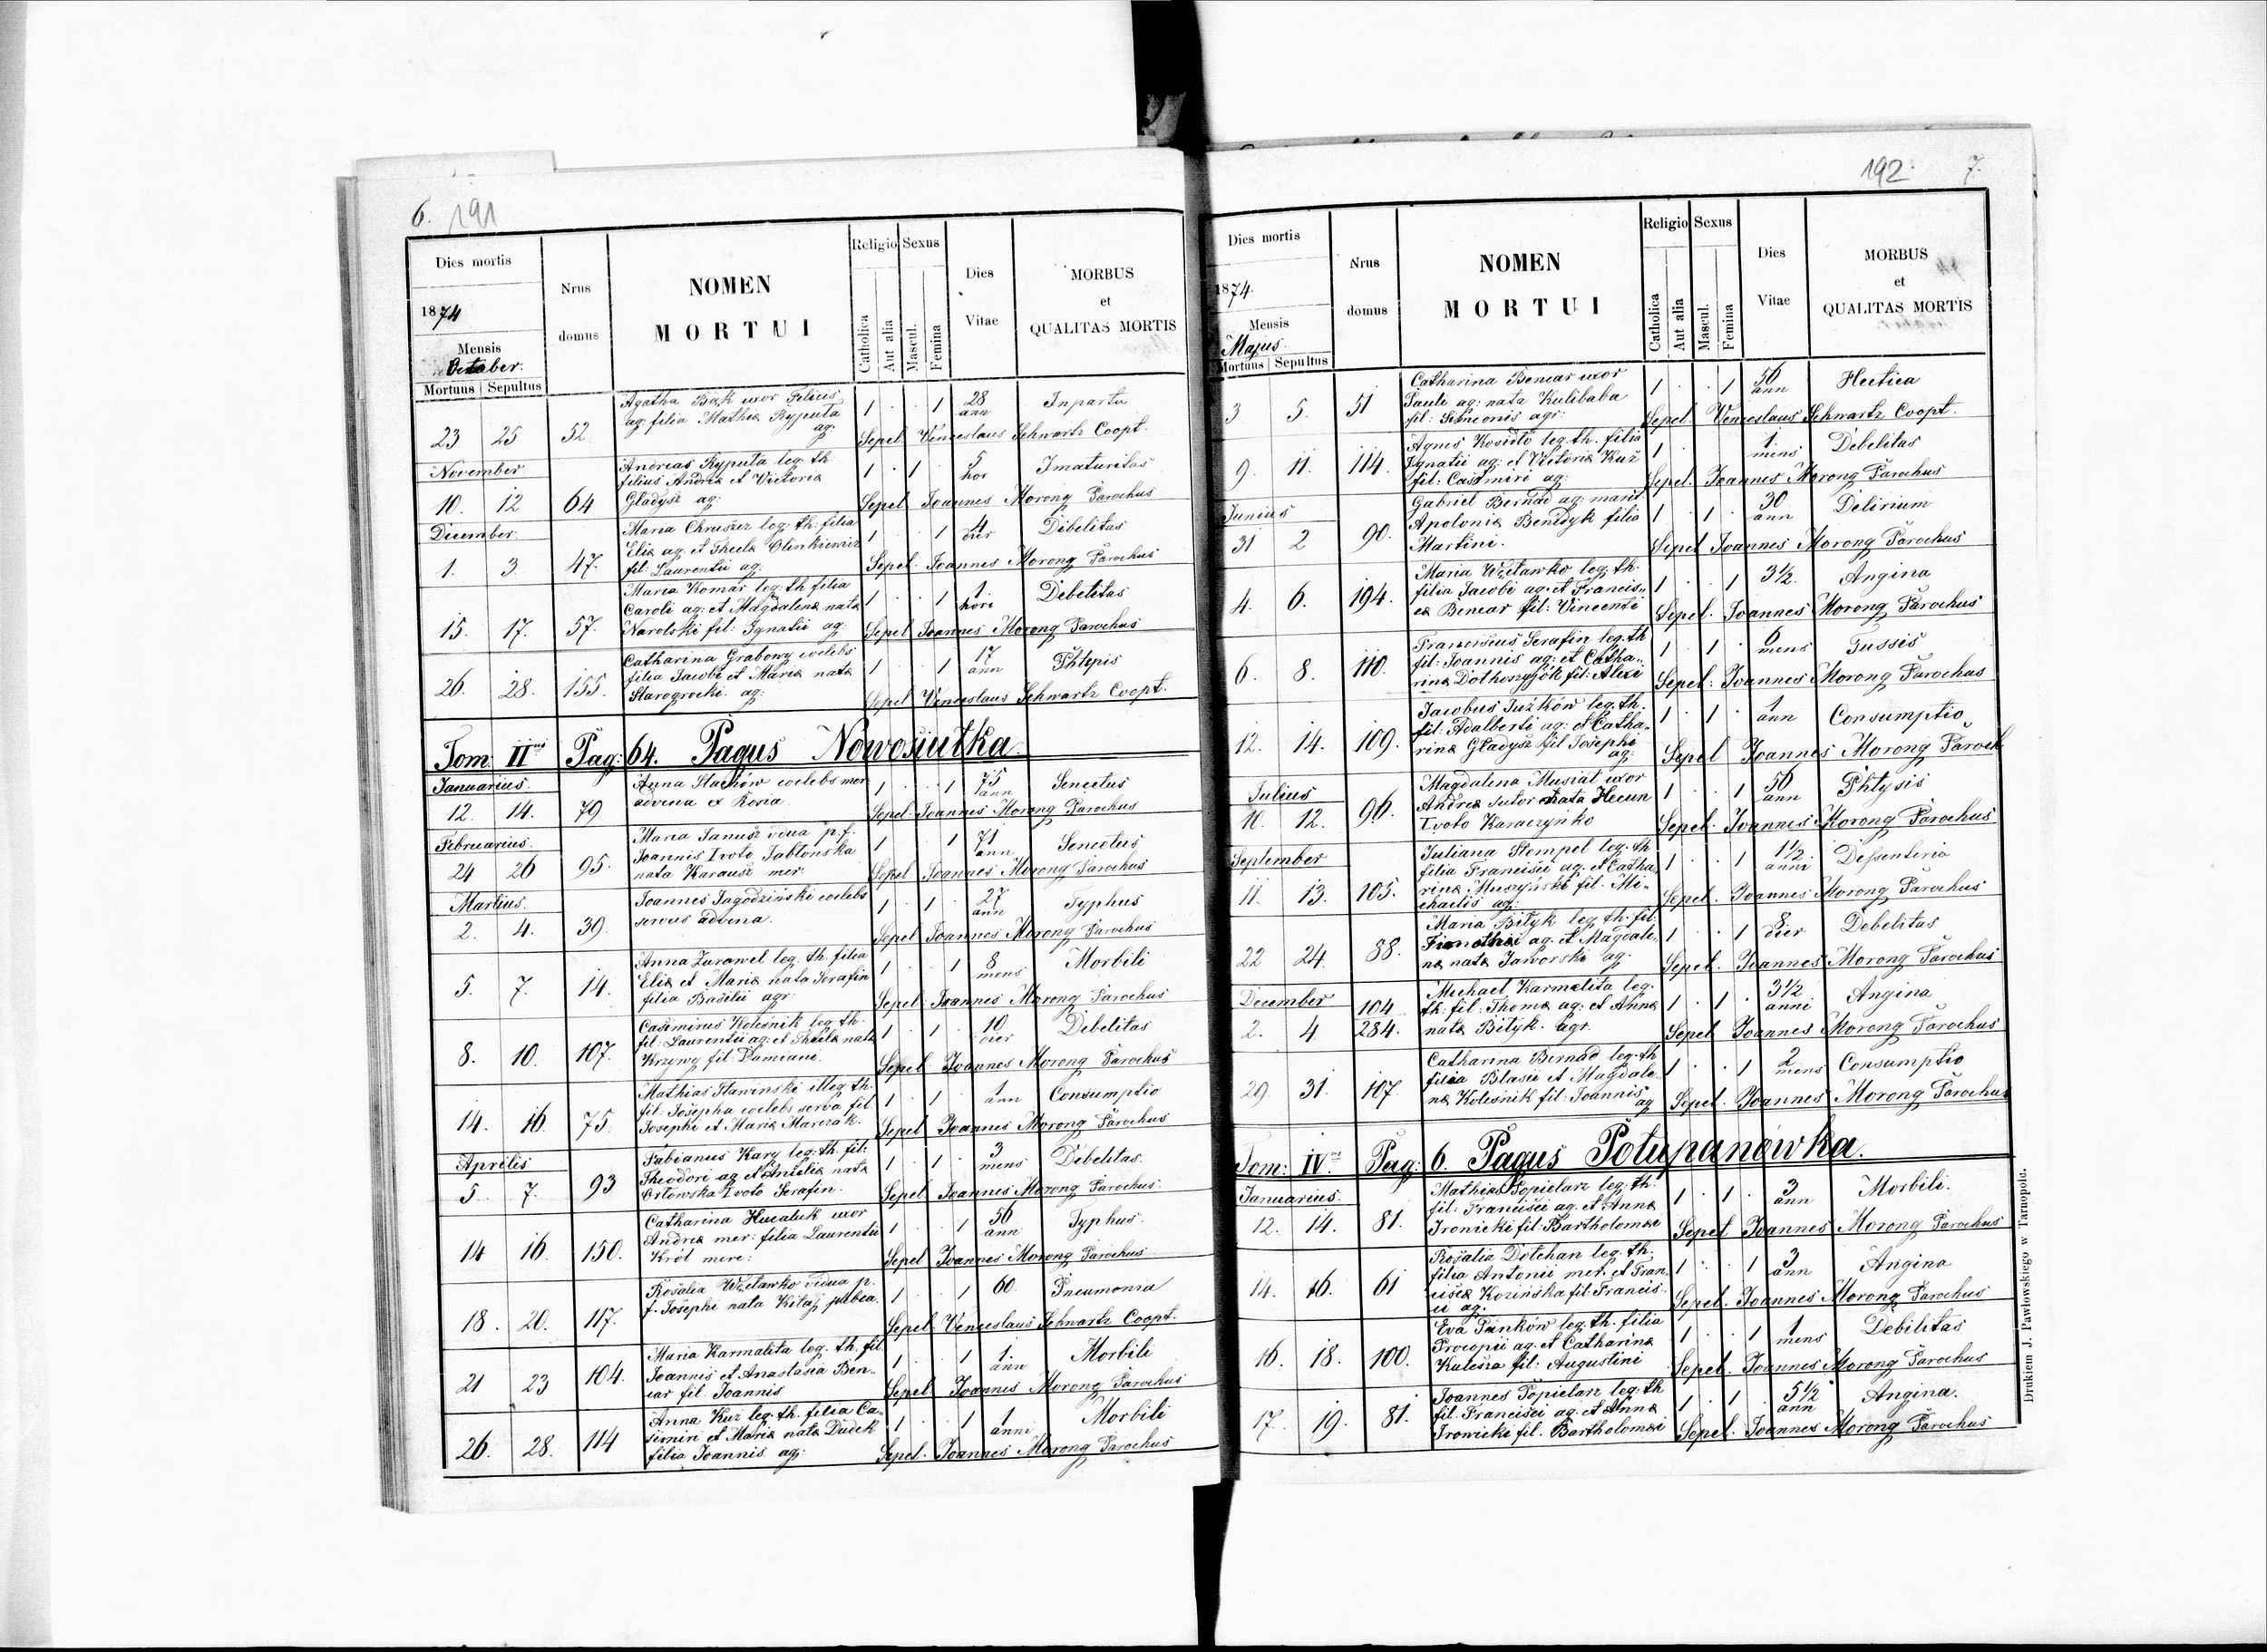 6. 191
Dies mortis
1874
Mensis
October.
Mortuus | Sepultus
Nrus
domus
NOMEN
MORTUI
Religio
Catholica
Aut alia
Sexus
Mascul.
Femina
Dies
Vitae
MORBUS
et
QUALITAS MORTIS
Agatha Bąk uxor
ag: filia Mathiæ Ryputa
ag:
23 25 52 1 . . 1 28 ann In partu
Sepel Venceslaus Schwartz Coopt.
November
Andreas Ryputa leg: th:
filius Andreæ et Victoria
Gladysz ag:
10. 12 64 1 . 1 . 5 hor Imaturitas
Sepel Joannes Morong Parochus
December
Maria Chruszcz leg: th: filia
Eliæ ag. et Theclæ Olinkiewicz
fil: Laurentii ag:
1. 3 47. 1 . . 1 4 dier Debelitas
Sepel. Joannes Morong Parochus
Maria Komar leg: th filia
Caroli ag: et Magdalenæ nata
Narolski fil: Ignatii ag:
15. 17. 57. 1 . . 1 1 hori Debelitas
Sepel Joannes Morong Parochus
Catharina Grabowy coelebs
filia Jacobi et Mariæ nata
Starogrocki ag:
26. 28. 155. 1 . . 1 17 ann
Sepel Venceslaus Schwartz Coopt.
Tom: IIus Pag: 64. Pagus Nowosiułka.
Januarius.
Anna Stachów coelebs mer
advena ex Rona
12. 14. 79 1 . . 1 75 ann Senectus
Sepel. Joannes Morong Parochus
Februarius.
Maria Janusz vidua p. f.
Joannis I voto Jabłonska
nata Karausz mer:
24 26 95. 1 . . 1 71 ann Senectus
Sepel Joannes Morong Parochus
Martius.
Joannes Jagodziński coelebs
servus advena.
2. 4. 39. 1 . 1 . 27 ann Typhus
Sepel Joannes Morong Parochus
Anna Żurawel leg: th. filia
Eliæ et Mariæ nata Serafin
filia Basilii agr:
5. 7. 14. 1 . . 1 8 mens Morbili
Sepel: Joannes Morong Parochus
Casimirus Kolesnik leg: th.
fil: Laurentii ag: et Theclæ nata
Krzywy fil: Damiani.
8. 10. 107. 1 . 1 . 10 dier Debelitas
Sepel. Joannes Morong Parochus
Mathias Sławinski illeg. th.
fil: Josepha coelebs serva fil
Josephi et Mariæ Marczak.
14. 16. 75. 1 . 1 . 1 ann Consumptio
Sepel Joannes Morong Parochus
Aprilis
Fabianus Kary leg: th. fil:
Theodori ag et Anielæ nata
Orłowska I voto Serafin.
5. 7. 93 1 . 1 . 3 mens Debelitas.
Sepel Joannes Morong Parochus.
Catharina Hucaluk uxor
Andreæ mer: filia Laurentii
Król merc:
14 16 150. 1 . . 1 56 ann Typhus.
Sepel Joannes Morong Parochus
Rosalia Węcławko vidua p.
f. Josephi nata Kitaj
18. 20. 117. 1 . . 1 60 Pneumonia
Sepel Venceslaus Schwartz Coopt.
Maria Karmalita leg. th. fil
Joannis et Anastasia Ben-
car fil. Joannis
21 23 104. 1 . . 1 1 ann Morbili
Sepel Joannes Morong Parochus
Anna Kuź leg. th. filia Ca-
simiri et Mariæ nata Dudek
filia Joannis ag:
26. 28. 114 1 . . 1 1 anni Morbili
Sepel. Joannes Morong Parochus
192. 7.
Dies mortis
1874.
Mensis
Majus.
Mortuus | Sepultus
Nrus
domus
NOMEN
MORTUI
Religio
Catholica
Aut alia
Sexus
Mascul.
Femina
Dies
Vitae
MORBUS
et
QUALITAS MORTIS
Catharina Bencar uxor
Pauli ag: nata Kulibaba
fil: Simeonis agr:
3 5. 51 1 . . 1 56 ann Hectica
Sepel. Venceslaus Schwartz Coopt.
Agnes leg. th. filia
Ignatii ag: et Victoriæ Kuź
fil: Casimiri ag:
9. 11. 114. 1 . 1. mens Debelitas
Sepel. Joannes Morong Parochus
Junius
Gabriel Bernad ag: marit
Apoloniæ Benedyk filia
Martini.
31 2 90. 1 . 1 . 30 ann Delirium
Sepel Joannes Morong Parochus
Maria Węcławko leg. th.
filia Jacobi ag. et Francis„
cæ Bencar fil: Vincenti
4. 6. 194. 1 . . 1 3½. Angina
Sepel. Joannes Morong Parochus
Franciscus Serafin leg. th
fil: Joannis ag: et Catha„
rinæ fil: Alexi
6. 8. 110. 1 . 1 . 6 mens Tussis
Sepel: Joannes Morong Parochus
Jacobus Tużków leg. th.
fil: Adalberti ag: et Catha„
rinæ Gładysz fil Josephi
ag:
12. 14. 109. 1 . 1 . 1 ann Consumptio
Sepel Joannes Morong Paroch
Julius
Magdalena Musiał uxor
Andreæ sutor nata Hecun
I voto Karaczynko
10. 12. 96. 1 . . 1 56 ann Phtysis
Sepel. Joannes Morong Parochus
September
Juliana Stempel leg. th
filia Francisci ag. et Catha„
rinæ Muszyński fil. Mi„
chaelis ag:
11. 13. 105. 1 . . 1 1½ anni Dessenteria
Sepel. Joannes Morong Parochus
Maria Bityk leg. th. fil:
Timothei ag. et Magdale„
næ nata Jaworski ag.
22 24. 88. 1 . . 1 8 dier Debelitas
Sepel. Joannes Morong Parochus
December
Michael Karmelita leg.
th. fil: Thomæ ag. et Annæ
nata Bityk. agr.
2. 4 104 284. 1 . 1 . 3½ anni Angina
Sepel Joannes Morong Parochus
Catharina Bernad leg. th
filia Blasii et Magdale„
næ Kolesnik fil: Joannis
ag
29. 31. 107. 1 . . 1 2 mens Consumptio
Sepel. Joannes Morong Parochus
Tom: IVus Pag: 6. Pagus Potupanówka.
Januarius.
Mathias Popielarz leg. th.
fil: Francisci ag. et Annæ
Jronicki fil: Bartholomæi
12. 14. 81. 1 . 1 . 3 ann Morbili.
Sepel Joannes Morong Parochus
Rosalia Dotchan leg. th;
filia Antonii mer. et Fran„
ciscæ Kozińska fil. Francis-
ci ag.
14. 16. 61 1 . . 1 3 ann Angina
Sepel. Joannes Morong Parochus
Eva Pańków leg. th. filia
Procopii ag. et Catharinæ
Kulesza fil: Augustini
16. 18. 100. 1 . . 1 1 mens Debilitas
Sepel. Joannes Morong Parochus
Joannes Popielarz leg. th
fil. Francisci ag. et Annæ
Jronicki fil. Bartholomæi
17. 19. 81. 1 . 1 . 5½ ann Angina.
Sepel. Joannes Morong Parochus
Drukiem J. Pawłowskiego w Tarnopolu.